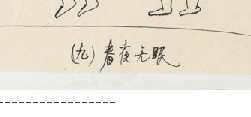 (九)春夜无眠